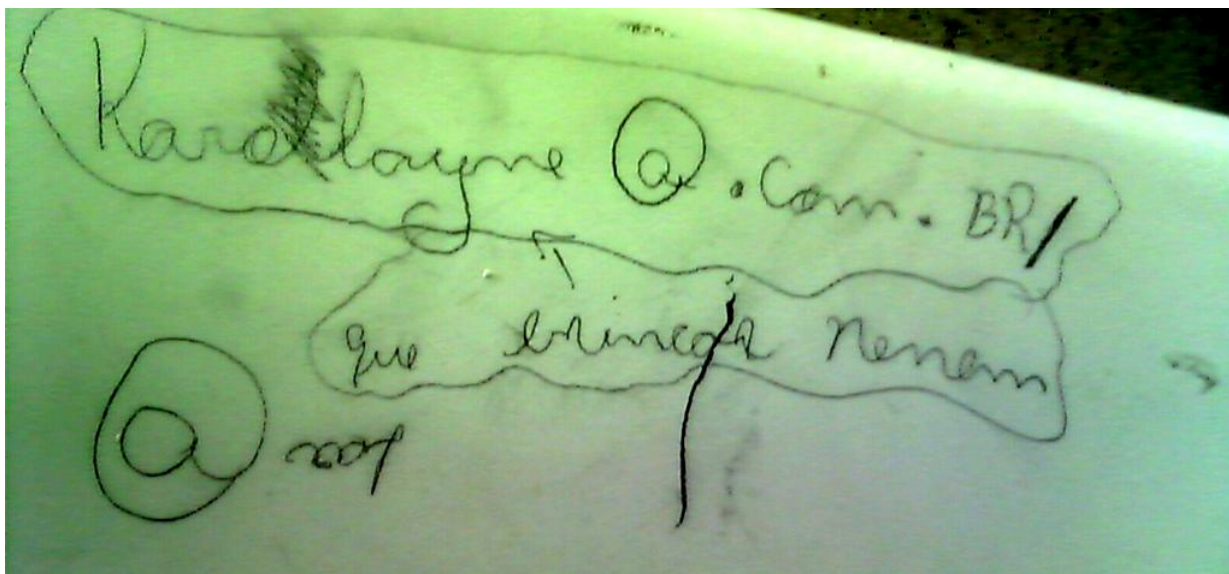 Karollayne @.com.BR/
que brincar Nenem
@